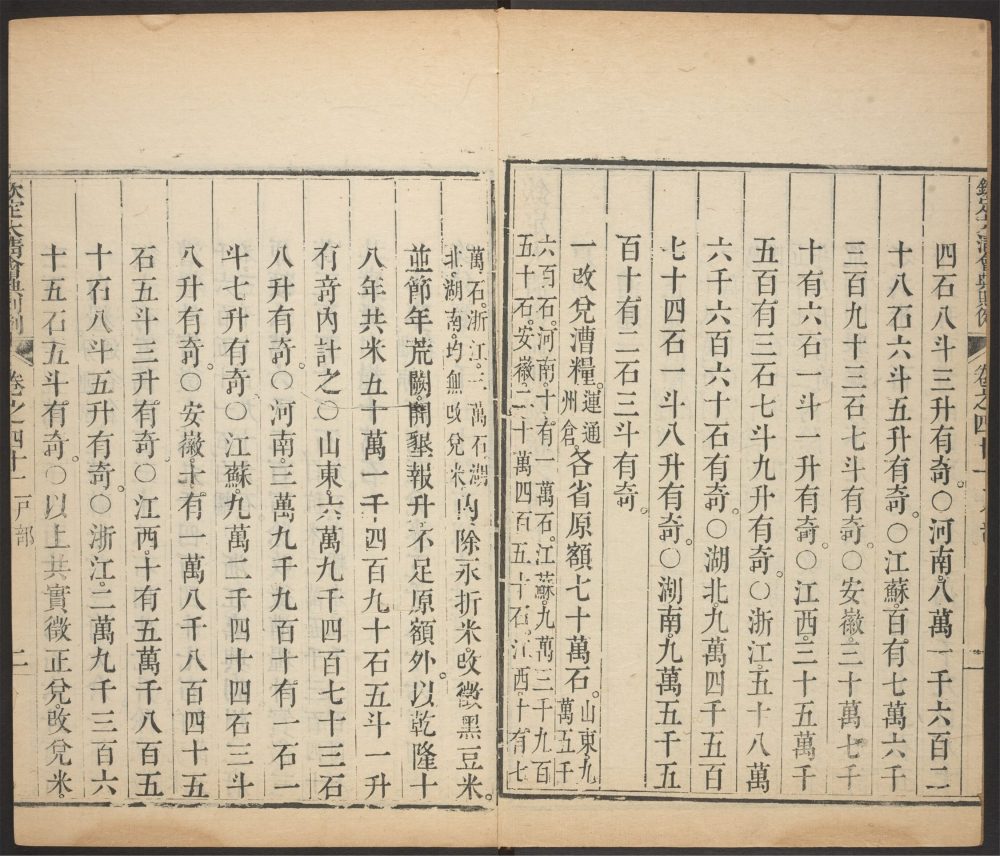 欽定大清會典則例 卷之四十一 戶部
四石八斗三升有奇。○河南。八萬一千六百二
十八石六斗五升有奇。○江蘇。百有七萬六千
三百九十三石七斗有奇。○安徽。三十萬七千
十有六石一斗一升有奇。○江西。三十五萬千
五百有三石七斗九升有奇。○浙江。五十八萬
六千六百六十石有奇。○湖北。九萬四千五百
七十四石一斗八升有奇。○湖南。九萬五千五
百十有二石三斗有奇。
一改兌漕糧。運通州倉。各省原額七十萬石。山東九萬五千
六百石。河南。十有一萬石。江蘇。九萬三千九百
五十石。安徽。二十萬四百五十石。江西。十有七
萬石。浙江。三萬石。湖
北。湖南。均無改兌米。內除永折米。改徵黑豆米。
並節年荒闕。開墾報升。不足原額外。以乾隆十
八年共米五十萬一千四百九十石五斗一升
有奇內計之○山東。六萬九千四百七十三石
八升有奇。○河南。三萬九千九百十有一石一
斗七升有奇。○江蘇。九萬二千四十四石三斗
八升有奇。○安徽。十有一萬八千八百四十五
石五斗三升有奇。○江西。十有五萬千八百五
十石八斗五升有奇。○浙江。二萬九千三百六
十五石五斗有奇。○以上共實徵正兌。改兌米。
欽定大清會典則例 卷之四十一 戶部 二